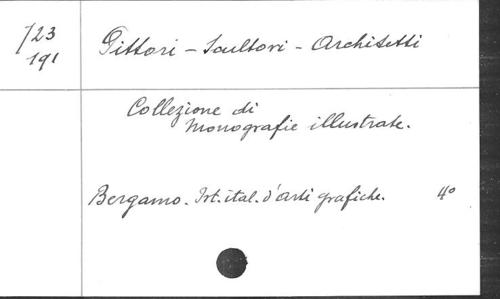 723
191
Pittori - Scultori - Architetti
Collezione di
Monografie illustrate.
Bergamo. Ist. ital. d'arti grafiche. 4°